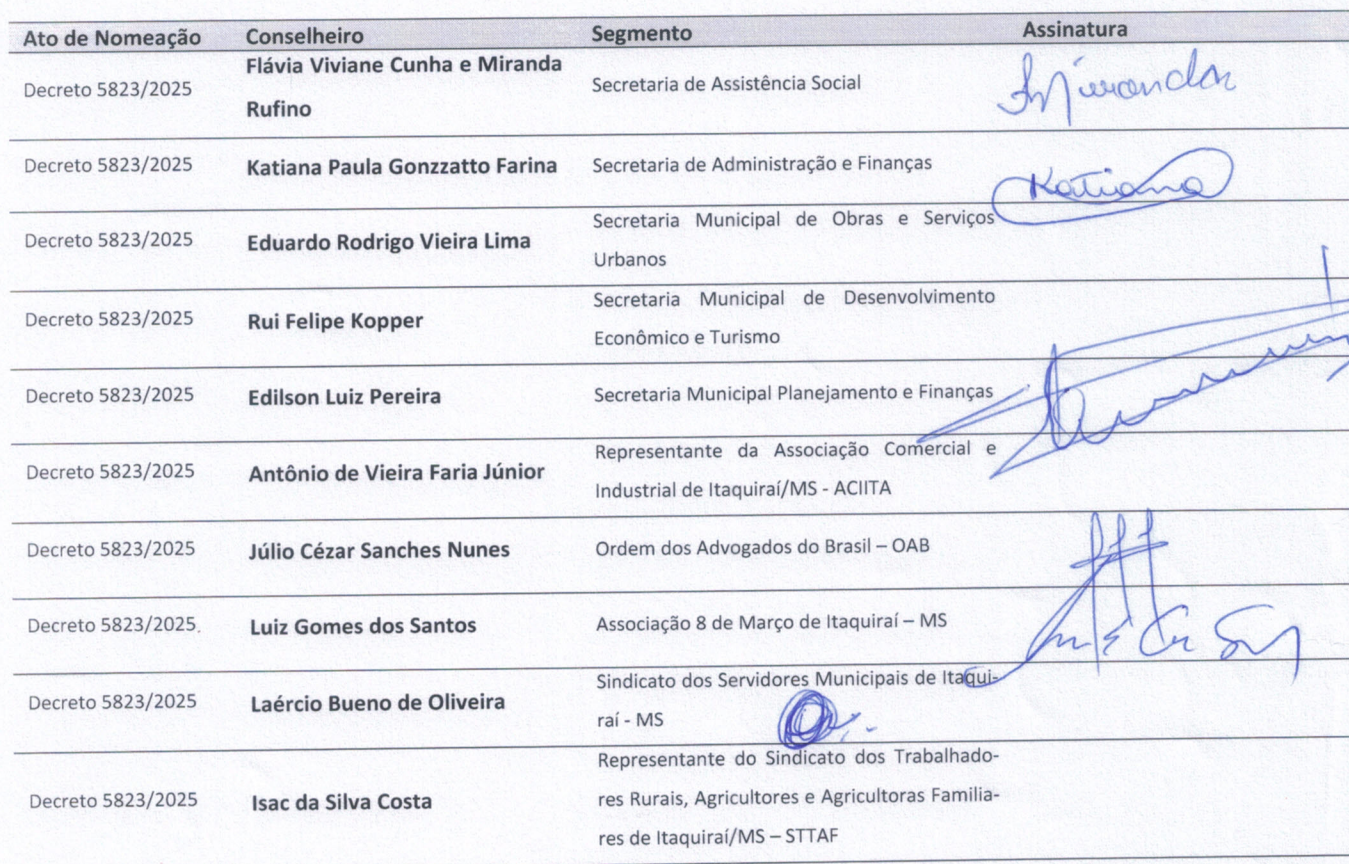 Ato de Nomeação Conselheiro Segmento Assinatura
Decreto 5823/2025 Flávia Viviane Cunha e Miranda Rufino Secretaria de Assistência Social
Decreto 5823/2025 Katiana Paula Gonzzatto Farina Secretaria de Administração e Finanças Katiana
Decreto 5823/2025 Eduardo Rodrigo Vieira Lima Secretaria Municipal de Obras e Serviços
Urbanos
Decreto 5823/2025 Rui Felipe Kopper Secretaria Municipal de Desenvolvimento
Econômico e Turismo
Decreto 5823/2025 Edilson Luiz Pereira Secretaria Municipal Planejamento e Finanças
Decreto 5823/2025 Antônio de Vieira Faria Júnior Representante da Associação Comercial e
Industrial de Itaquiraí/MS - ACIITA
Decreto 5823/2025 Júlio Cézar Sanches Nunes Ordem dos Advogados do Brasil – OAB
Decreto 5823/2025 Luiz Gomes dos Santos Associação 8 de Março de Itaquiraí – MS
Decreto 5823/2025 Laércio Bueno de Oliveira Sindicato dos Servidores Municipais de Itaqui-
raí - MS
Decreto 5823/2025 Isac da Silva Costa Representante do Sindicato dos Trabalhado-
res Rurais, Agricultores e Agricultoras Familia-
res de Itaquiraí/MS – STTAF